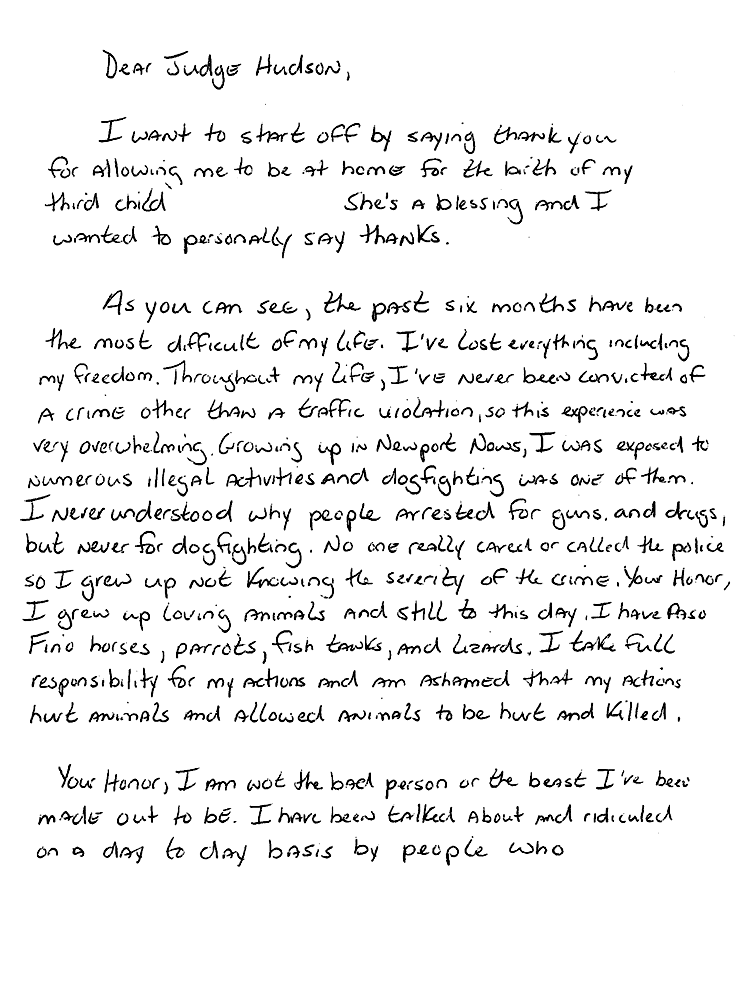 Dear Judge Hudson,
I want to start off by saying thank you
for allowing me to be at home for the birth of my
third child She's a blessing and I
wanted to personally say thanks.
As you can see, the past six months have been
the most difficult of my life. I've lost everything including
my freedom. Throughout my life, I've never been convicted of
a crime other than a traffic violation, so this experience was
very overwhelming. Growing up in Newport News, I was exposed to
numerous illegal activities and dogfighting was one of them.
I never understood why people arrested for guns, and drugs,
but never for dogfighting. No one really cared or called the police
so I grew up not knowing the severity of the crime. Your Honor,
I grew up loving animals and still to this day. I have Paso
Fino horses, parrots, fish tanks, and lizards. I take full
responsibility for my actions and am ashamed that my actions
hurt animals and allowed animals to be hurt and killed.
Your Honor, I am not the bad person or the beast I've been
made out to be. I have been talked about and ridiculed
on a day to day basis by people who